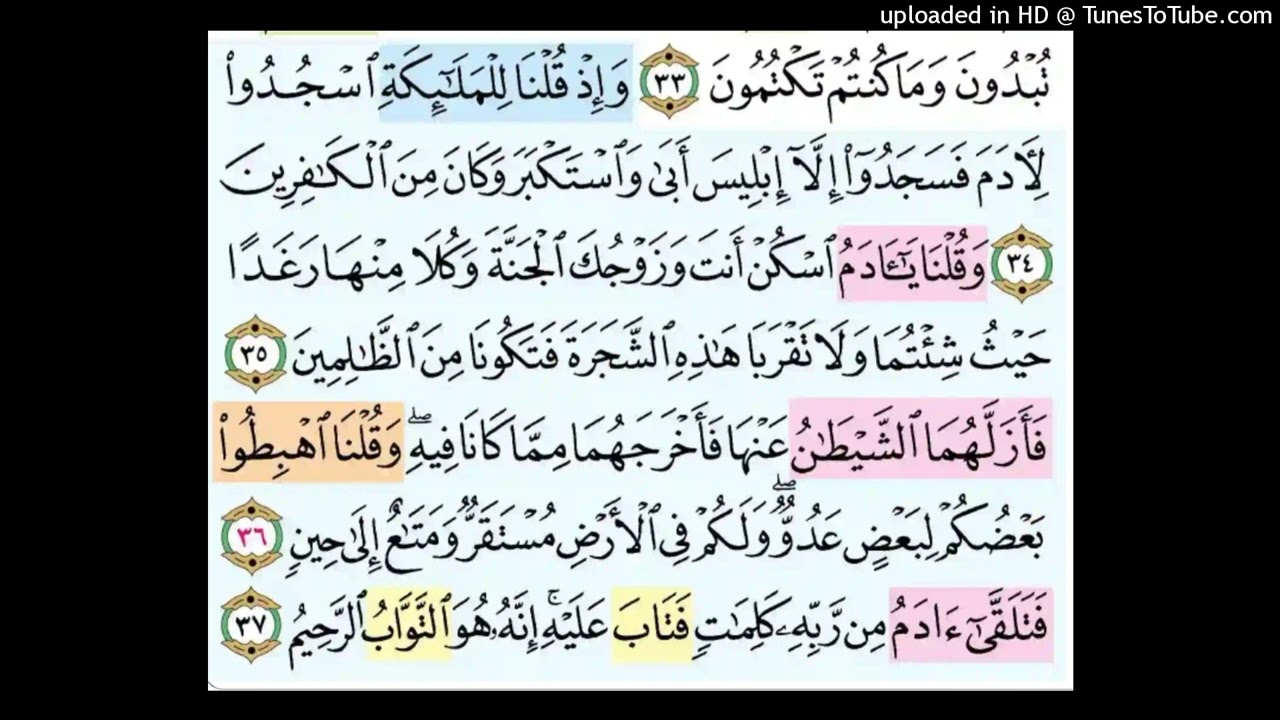 uploaded in HD @ TunesToTube.com
تُبْدُونَ وَمَا كُنتُمْ تَكْتُمُونَ ٣٣ وَإِذْ قُلْنَا لِلْمَلَـٰٓئِكَةِ ٱسْجُدُوا۟
لِـَٔادَمَ فَسَجَدُوٓا۟ إِلَّآ إِبْلِيسَ أَبَىٰ وَٱسْتَكْبَرَ وَكَانَ مِنَ ٱلْكَـٰفِرِينَ
٣٤ وَقُلْنَا يَـٰٓـَٔادَمُ ٱسْكُنْ أَنتَ وَزَوْجُكَ ٱلْجَنَّةَ وَكُلَا مِنْهَا رَغَدًا
حَيْثُ شِئْتُمَا وَلَا تَقْرَبَا هَـٰذِهِ ٱلشَّجَرَةَ فَتَكُونَا مِنَ ٱلظَّـٰلِمِينَ ٣٥
فَأَزَلَّهُمَا ٱلشَّيْطَـٰنُ عَنْهَا فَأَخْرَجَهُمَا مِمَّا كَانَا فِيهِ ۖ وَقُلْنَا ٱهْبِطُوا۟
بَعْضُكُمْ لِبَعْضٍ عَدُوٌّ ۖ وَلَكُمْ فِى ٱلْأَرْضِ مُسْتَقَرٌّ وَمَتَـٰعٌ إِلَىٰ حِينٍ ٣٦
فَتَلَقَّىٰٓ ءَادَمُ مِن رَّبِّهِۦ كَلِمَـٰتٍ فَتَابَ عَلَيْهِ ۚ إِنَّهُۥ هُوَ ٱلتَّوَّابُ ٱلرَّحِيمُ ٣٧